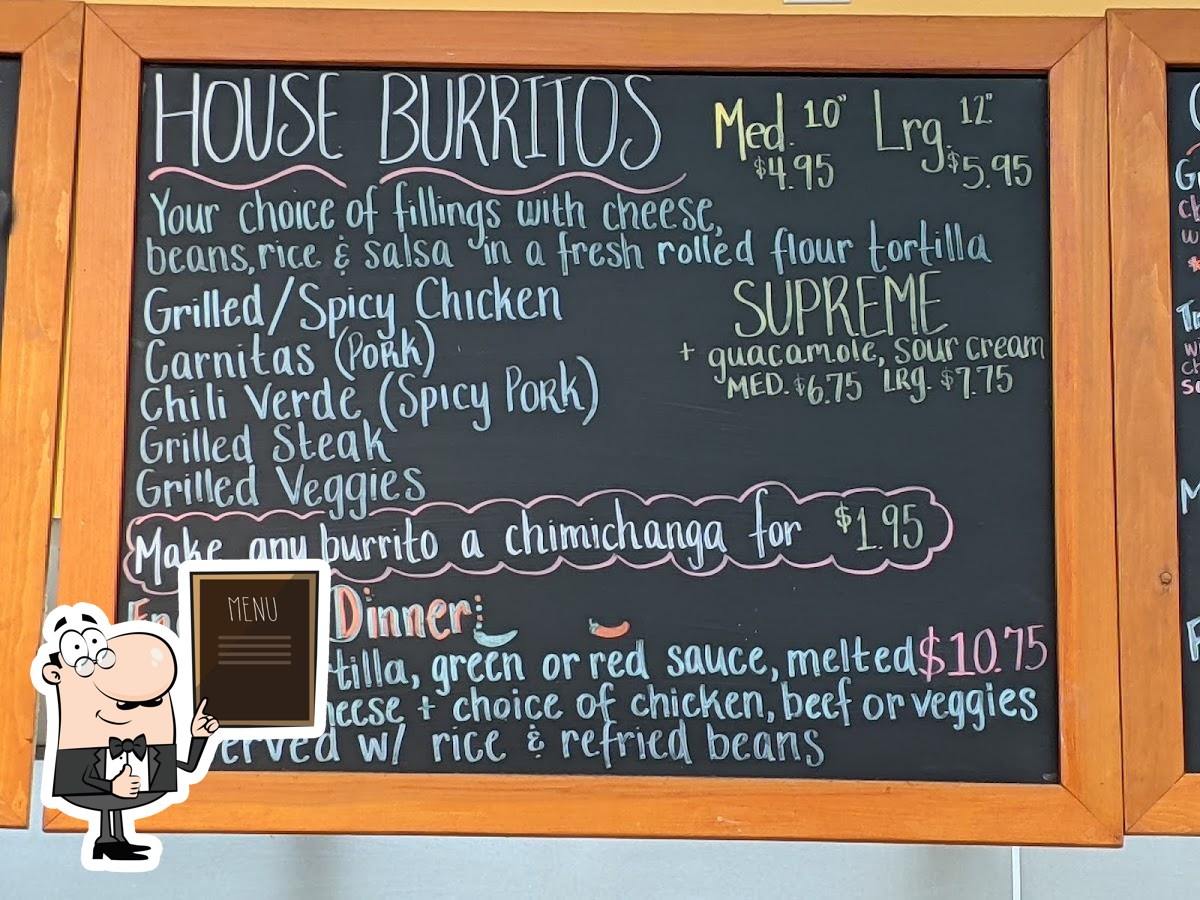 HOUSE BURRITOS
Med. 10" Lrg. 12"
$4.95 $5.95
Your choice of fillings with cheese,
beans, rice & salsa in a fresh rolled flour tortilla
Grilled/Spicy Chicken
Carnitas (Pork)
Chili Verde (Spicy Pork)
Grilled Steak
Grilled Veggies
SUPREME
+ guacamole, sour cream
MED. $6.75 LRg. $7.75
Make any burrito a chimichanga for $1.95
Dinner:
green or red sauce, melted $10.75
+ choice of chicken, beef or veggies
w/ rice & refried beans
MENU